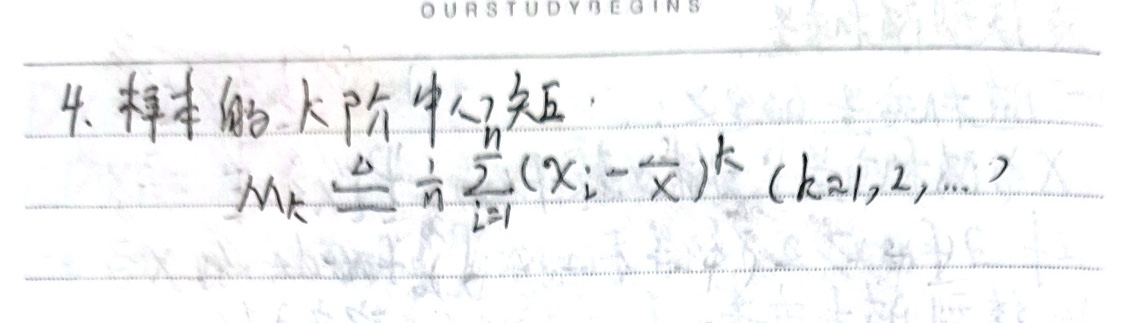 OURSTUDYBEGINS
4. 样本的 k 阶中心矩.
Mₖ ≜ 1/n ∑ⁿᵢ₌₁ (xᵢ - x̄)ᵏ (k=1,2,...)